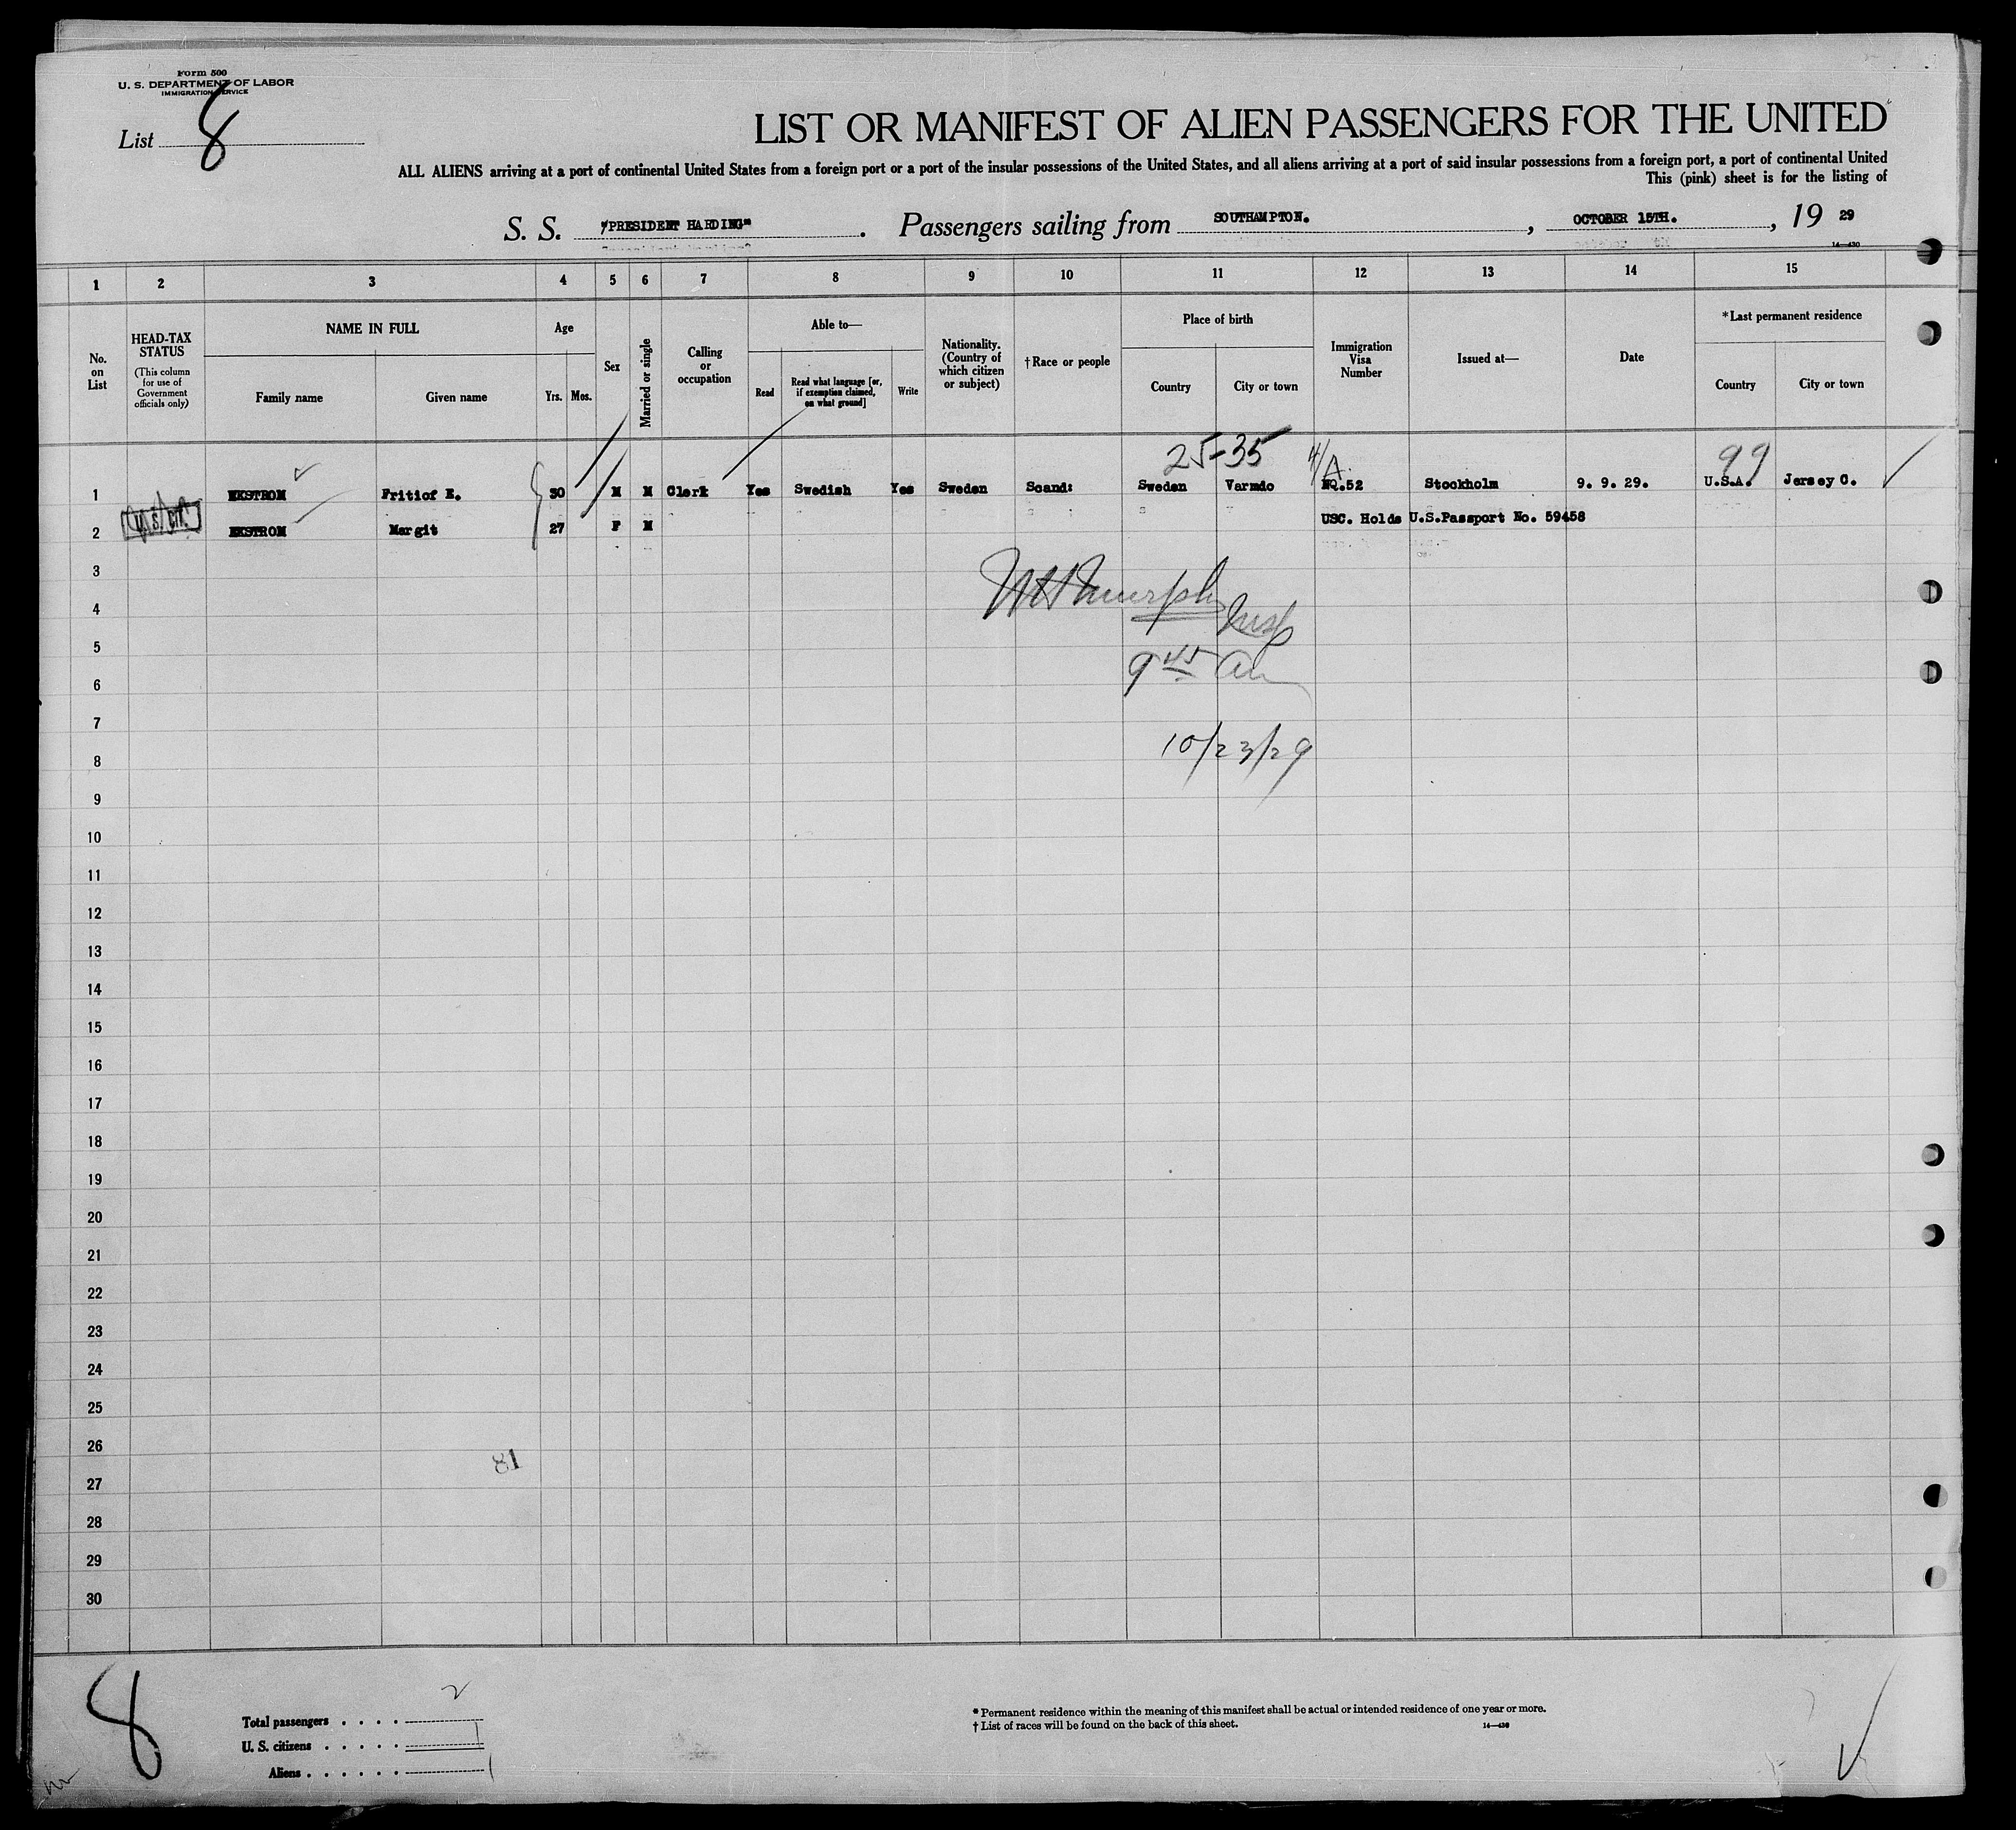 Form 500
U. S. DEPARTMENT OF LABOR
IMMIGRATION SERVICE
List 8
LIST OR MANIFEST OF ALIEN PASSENGERS FOR THE UNITED
ALL ALIENS arriving at a port of continental United States from a foreign port or a port of the insular possessions of the United States, and all aliens arriving at a port of said insular possessions from a foreign port, a port of continental United
This (pink) sheet is for the listing of
S. S. "PRESIDENT HARDING" . Passengers sailing from SOUTHAMPTON. , OCTOBER 15TH. , 19 29
14—430
1 2 3 4 5 6 7 8 9 10 11 12 13 14 15
No. on List
HEAD-TAX STATUS
(This column for use of Government officials only)
NAME IN FULL
Family name Given name
Age
Yrs. Mos.
Sex
Married or single
Calling or occupation
Able to—
Read Read what language [or, if exemption claimed, on what ground] Write
Nationality. (Country of which citizen or subject)
†Race or people
Place of birth
Country City or town
Immigration Visa Number
Issued at—
Date
*Last permanent residence
Country City or town
25-35 4/A. 99
1 EKSTROM Fritiof E. 30 M M Clerk Yes Swedish Yes Sweden Scand: Sweden Varmdo NQ.52 Stockholm 9. 9. 29. U.S.A. Jersey C.
U.S. Cit.
2 EKSTROM Margit 27 F M USC. Holds U.S.Passport No. 59458
3
4
Murphy Insp
5
6
9 45 am
7
10/23/29
8
9
10
11
12
13
14
15
16
17
18
19
20
21
22
23
24
25
26
81
27
28
29
30
8
Total passengers . . . . 2
U. S. citizens . . . . . 1
Aliens . . . . . . 1
* Permanent residence within the meaning of this manifest shall be actual or intended residence of one year or more.
† List of races will be found on the back of this sheet.
14—430